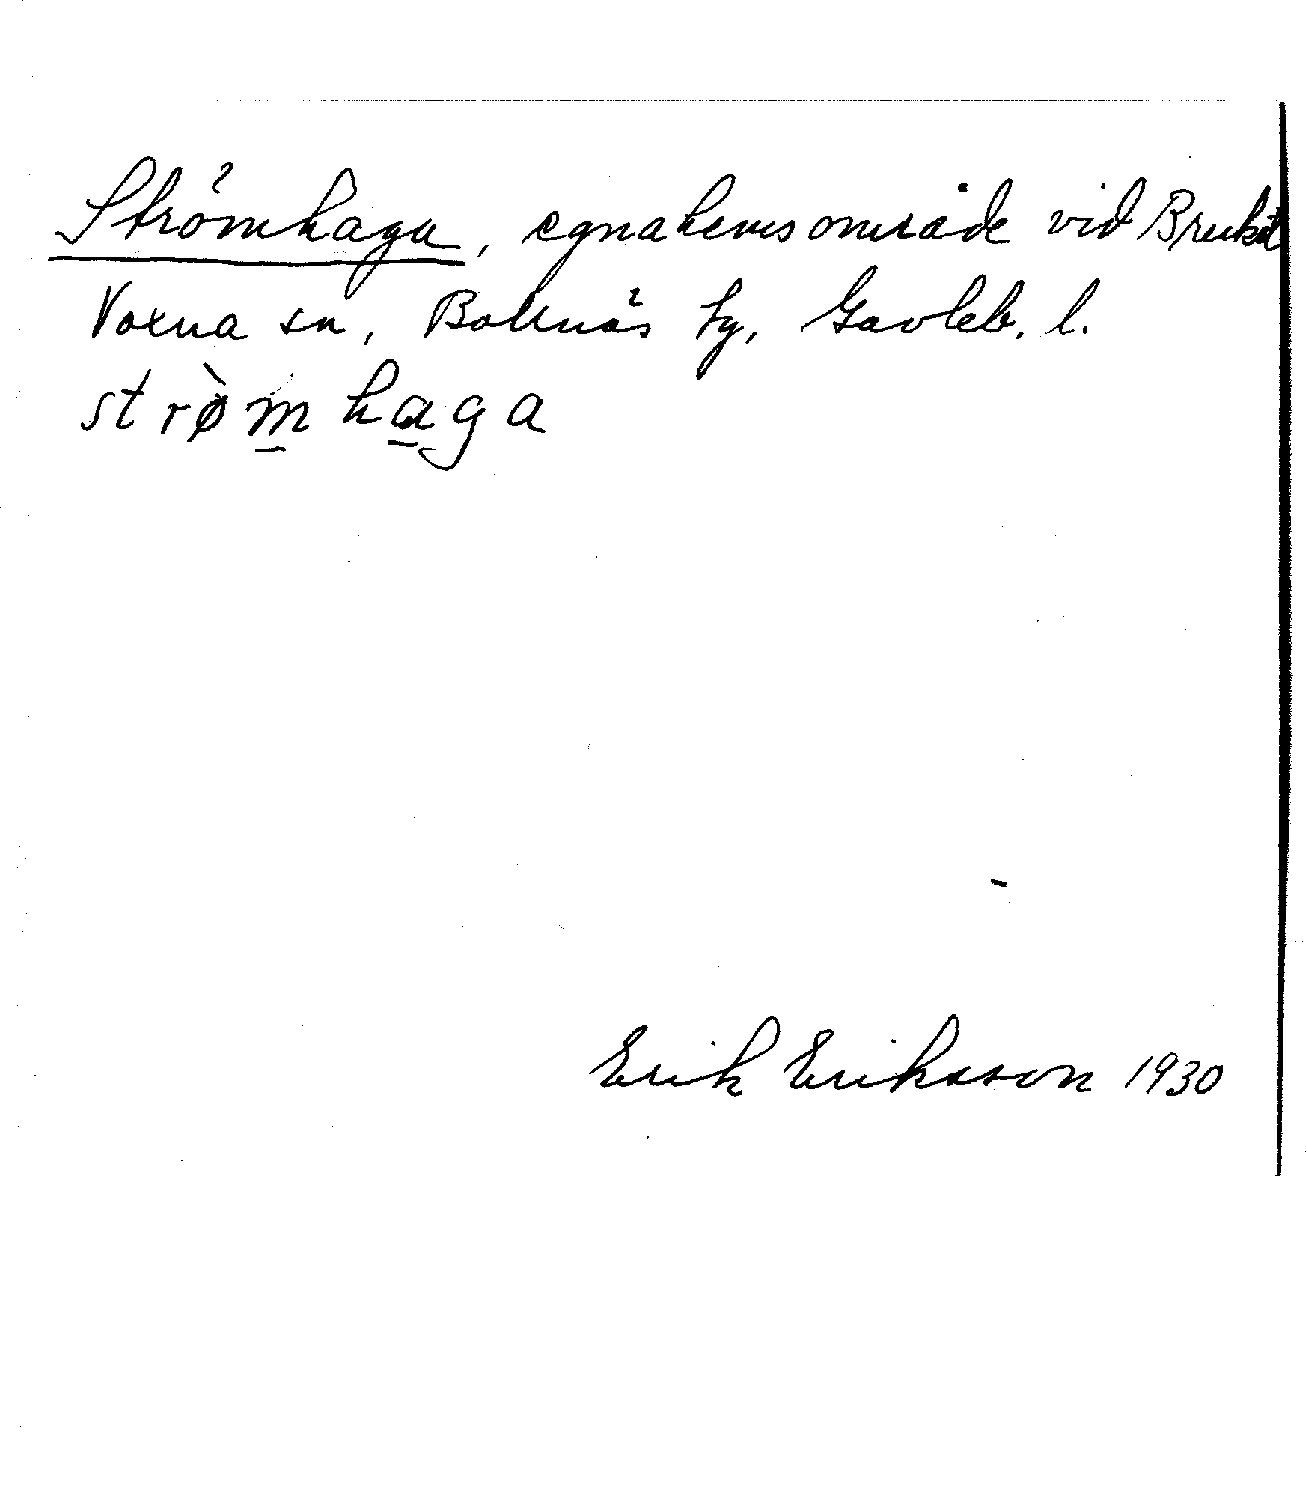 Strömhaga, egnahemsområde vid Bruket
Voxna sn, Bollnäs tg, Gävleb. l.
strø̀m haga
Erik Eriksson 1930